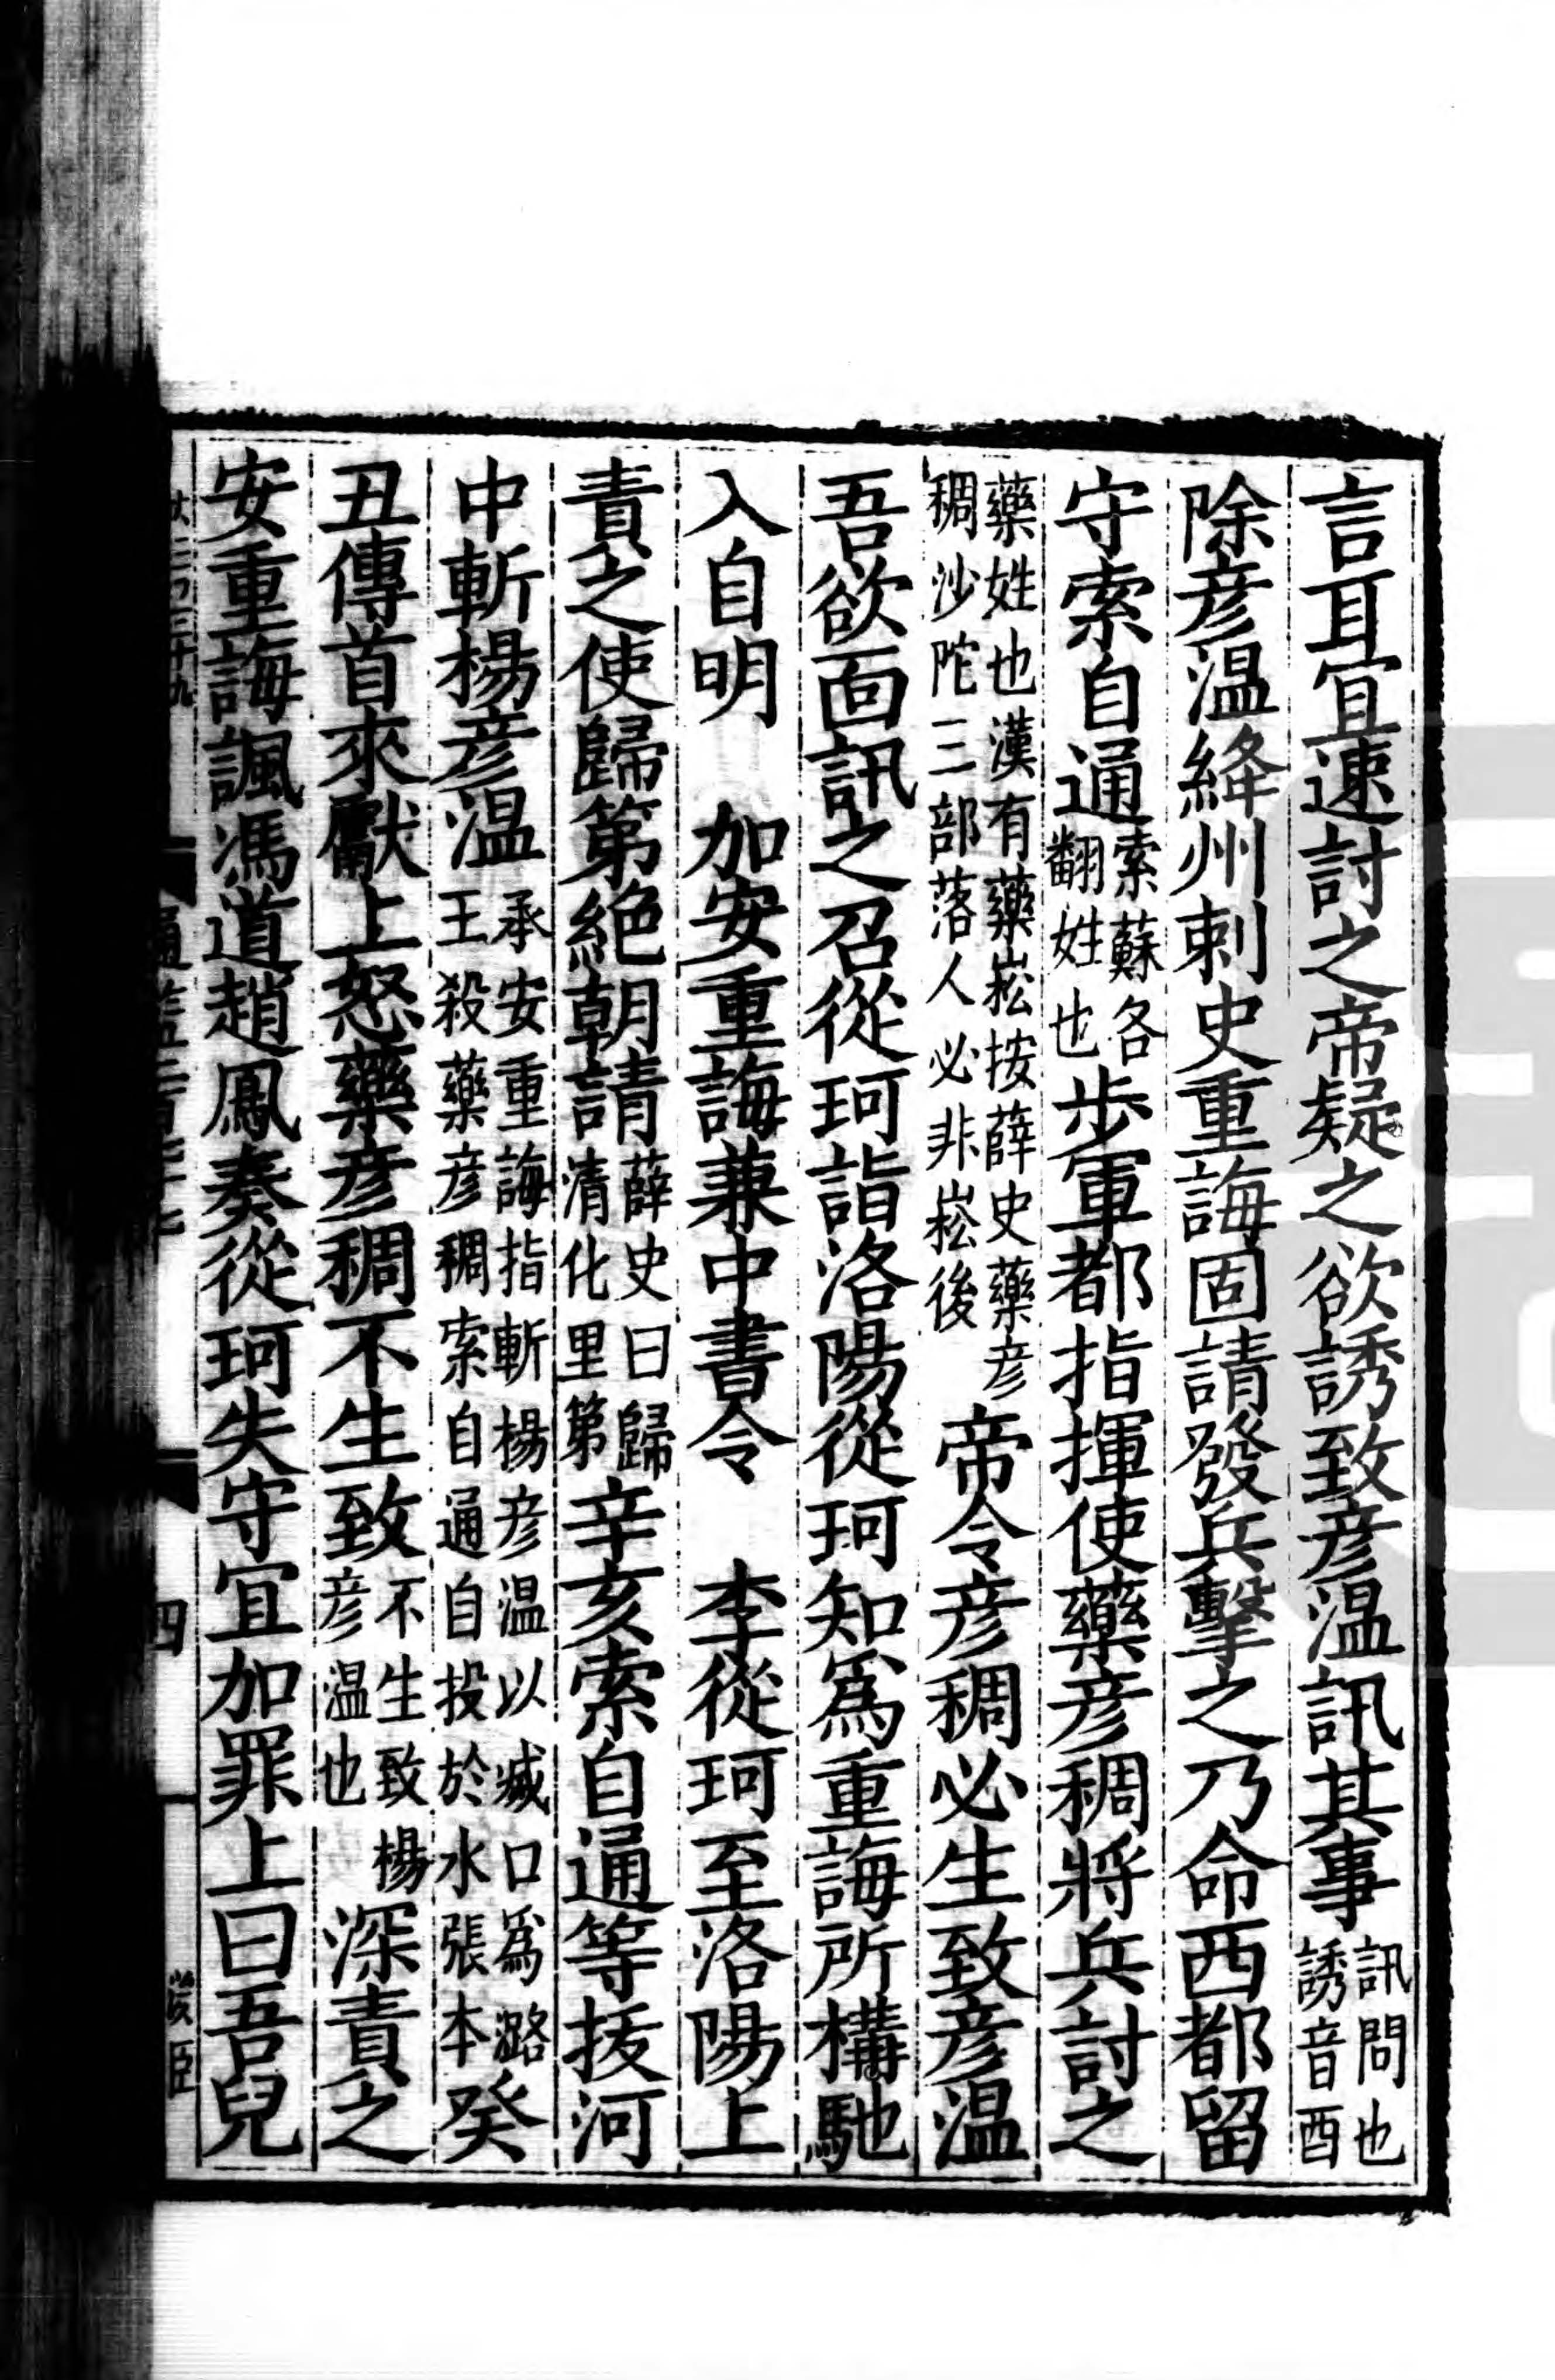 言耳宜速討之帝疑之欲誘致彥温訊其事訊問也誘音酉
除彥温絳州刺史重誨固請發兵擊之乃命西都留
守索自通索蘇各翻姓也步軍都指揮使藥彥稠將兵討之
藥姓也漢有藥崧按薛史藥彥稠沙陀三部落人必非崧後帝令彥稠必生致彥温
吾欲面訊之召從珂詣洛陽從珂知爲重誨所構馳
入自明　加安重誨兼中書令　李從珂至洛陽上
責之使歸第絶朝請薛史曰歸清化里第辛亥索自通等拔河
中斬楊彥温承安重誨指斬楊彥温以滅口爲潞王殺藥彥稠索自通自投於水張本癸
丑傳首來獻上怒藥彥稠不生致不生致楊彥温也深責之
安重誨諷馮道趙鳳奏從珂失守宜加罪上曰吾兒
四